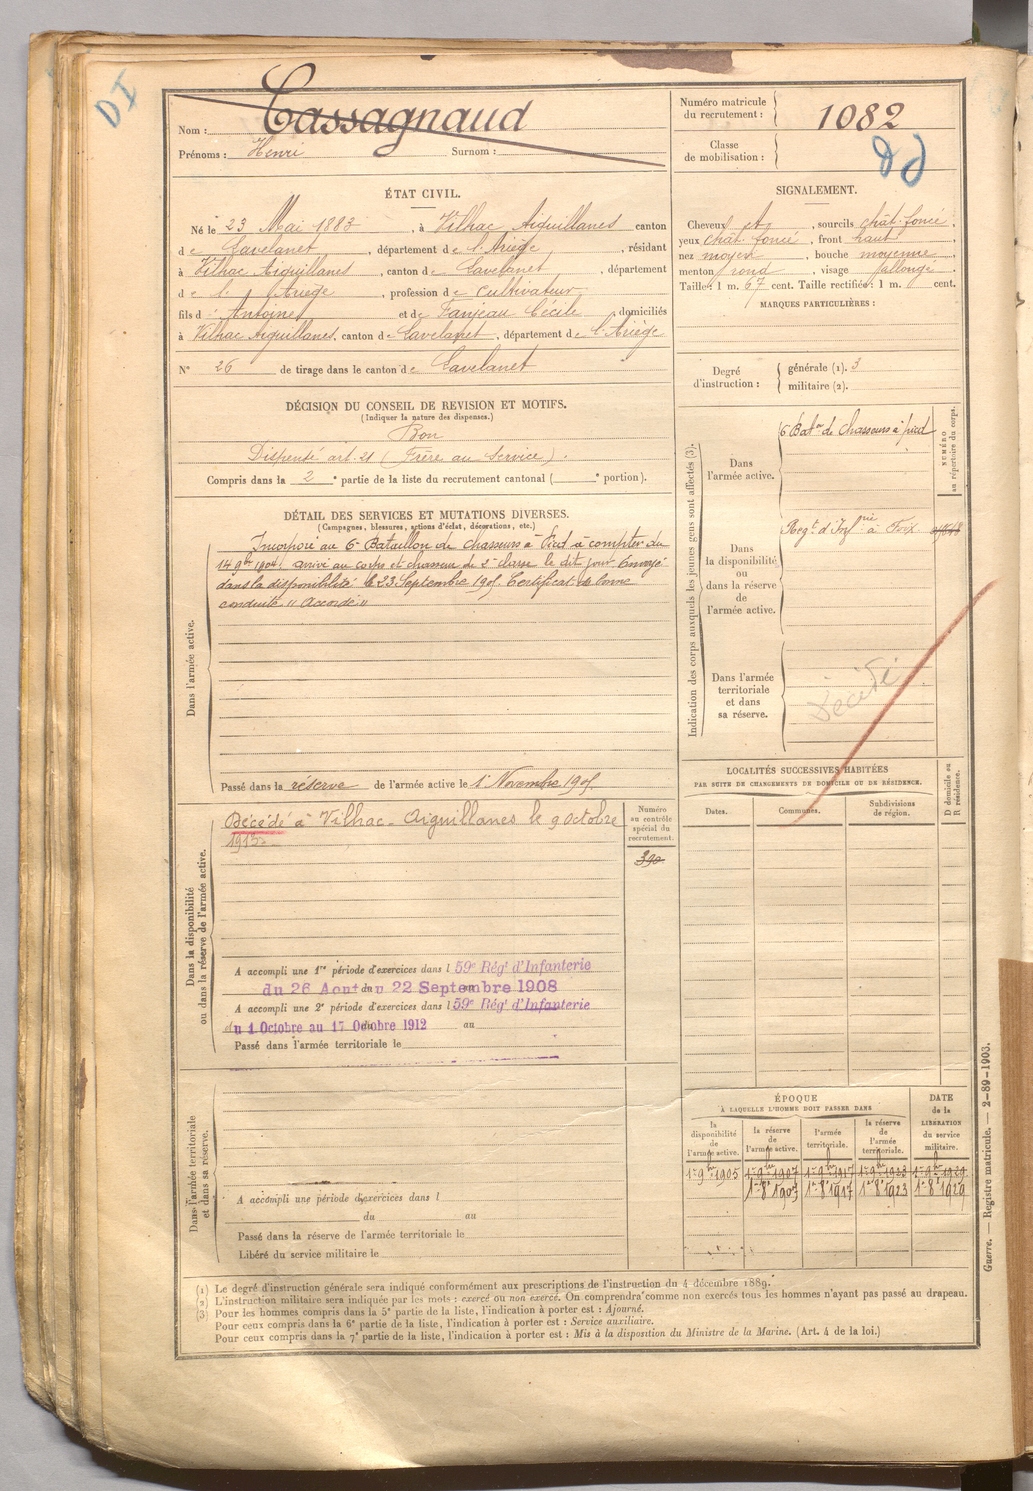 DI
Nom : Cassagnaud
Prénoms : Henri Surnom :
Numéro matricule du recrutement : 1082
Classe de mobilisation :
ÉTAT CIVIL.
Né le 23 Mai 1883, à Vilhac Aiguillanes canton
de Lavelanet, département de l'Ariège, résidant
à Vilhac Aiguillanes, canton de Lavelanet, département
de l'Ariège, profession de Cultivateur
fils d' Antoine et de Fanjeau Cécile, domiciliés
à Vilhac Aiguillanes, canton de Lavelanet, département de l'Ariège
N° 26 de tirage dans le canton de Lavelanet
SIGNALEMENT.
Cheveux, sourcils chât. foncé,
yeux chât. foncé, front haut
nez moyen, bouche moyenne,
menton rond, visage allongé.
Taille : 1 m. 67 cent. Taille rectifiée : 1 m. cent.
MARQUES PARTICULIÈRES :
Degré d'instruction : générale (1). 3
militaire (2).
DÉCISION DU CONSEIL DE REVISION ET MOTIFS.
(Indiquer la nature des dispenses.)
Bon
Dispensé art. 21 (Frère au Service).
Compris dans la 2e partie de la liste du recrutement cantonal ( e portion).
DÉTAIL DES SERVICES ET MUTATIONS DIVERSES.
(Campagnes, blessures, actions d'éclat, décorations, etc.)
Dans l'armée active.
Incorporé au 6e Bataillon de chasseurs à Pied à compter du
14 9bre 1904, arrivé au corps et chasseur de 2e classe le dit jour Envoyé
dans la disponibilité le 23 Septembre 1905 Certificat de bonne
conduite "Accordé"
Passé dans la réserve de l'armée active le 1er Novembre 1907
Indication des corps auxquels les jeunes gens sont affectés (3).
NUMÉRO au répertoire du corps.
Dans l'armée active.
6 Baton de chasseurs à pied
Dans la disponibilité ou dans la réserve de l'armée active.
Regt. d'Infrie à Foix
Dans l'armée territoriale et dans sa réserve.
Décédé
LOCALITÉS SUCCESSIVES HABITÉES
PAR SUITE DE CHANGEMENTS DE DOMICILE OU DE RÉSIDENCE.
Dates. Communes. Subdivisions de région. D domicile ou R résidence.
Dans la disponibilité ou dans la réserve de l'armée active.
Décédé à Vilhac-Aiguillanes le 9 octobre
1913
Numéro au contrôle spécial du recrutement.
390
A accompli une 1re période d'exercices dans l 59e Régt d'Infanterie
du 26 Aout au 22 Septembre 1908
A accompli une 2e période d'exercices dans l 59e Régt d'Infanterie
du 1 Octobre au 17 Octobre 1912 au
Passé dans l'armée territoriale le
Dans l'armée territoriale et dans sa réserve.
A accompli une période d'exercices dans l
du au
Passé dans la réserve de l'armée territoriale le
Libéré du service militaire le
ÉPOQUE
À LAQUELLE L'HOMME DOIT PASSER DANS
la disponibilité de l'armée active. la réserve de l'armée active. l'armée territoriale. la réserve de l'armée territoriale. DATE de la LIBÉRATION du service militaire.
1er 9bre 1905 1er 9bre 1907 1er 9bre 1917 1er 9bre 1923 1er 9bre 1929
1er 8bre 1907 1er 8bre 1917 1er 8bre 1923 1er 8bre 1929
(1) Le degré d'instruction générale sera indiqué conformément aux prescriptions de l'instruction du 4 décembre 1889.
(2) L'instruction militaire sera indiquée par les mots : exercé ou non exercé. On comprendra comme non exercés tous les hommes n'ayant pas passé au drapeau.
(3) Pour les hommes compris dans la 5e partie de la liste, l'indication à porter est : Ajourné.
Pour ceux compris dans la 6e partie de la liste, l'indication à porter est : Service auxiliaire.
Pour ceux compris dans la 7e partie de la liste, l'indication à porter est : Mis à la disposition du Ministre de la Marine. (Art. 4 de la loi.)
Guerre. — Registre matricule. — 2-89-1903.